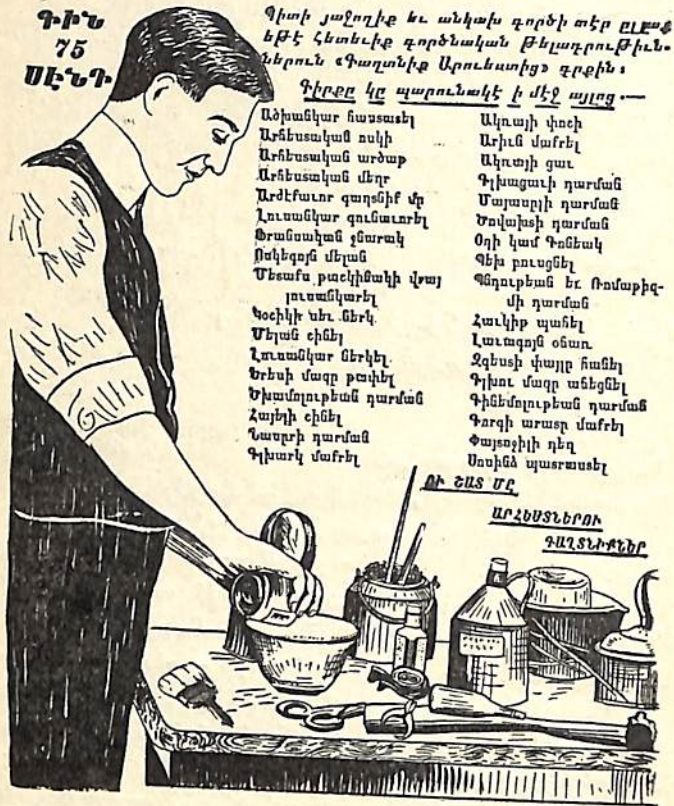 ԳԻՆ
75
ՍԷՆԴ
Պիտի յաջողիք եւ անկախ գործի տէր ըլլաք
եթէ հետեւիք գործնական թելադրութիւն-
ներուն «Գաղտնիք Արուեստից» գրքին:
Գիրքը կը պարունակէ ի մէջ այլոց.—
Ածխանկար հաստատել
Արհեստական ոսկի
Արհեստական արծաթ
Արհեստական մեղր
Արժէքաւոր գաղտնիք մը
Լուսանկար գունաւորել
Ֆրանսական ջնարակ
Ոսկեգոյն մելան
Մետաքս թաշկինակի վրայ
լուսանկարել
Կօշիկի սեւ ներկ
Մելան շինել
Լուսանկար ներկել
Երեսի մազը թափել
Ծխամոլութեան դարման
Հայելի շինել
Նասըրի դարման
Գլխարկ մաքրել
Ակռայի փոշի
Արիւն մաքրել
Ակռայի ցաւ
Գլխացաւի դարման
Մայասըլի դարման
Ծովախտի դարման
Օղի կամ Գոնեակ
Պեխ բուսցնել
Պնդութեան եւ Ռոմաթիզ-
մի դարման
Հաւկիթ պահել
Լաւագոյն օճառ
Զգեստի փայլը հանել
Գլխու մազը աճեցնել
Գինեմոլութեան դարման
Գորգի արատը մաքրել
Փայտոջիլի դեղ
Սոսինձ պատրաստել
ՈՒ ՇԱՏ ՄԸ
ԱՐՀԵՍՏՆԵՐՈՒ
ԳԱՂՏՆԻՔՆԵՐ